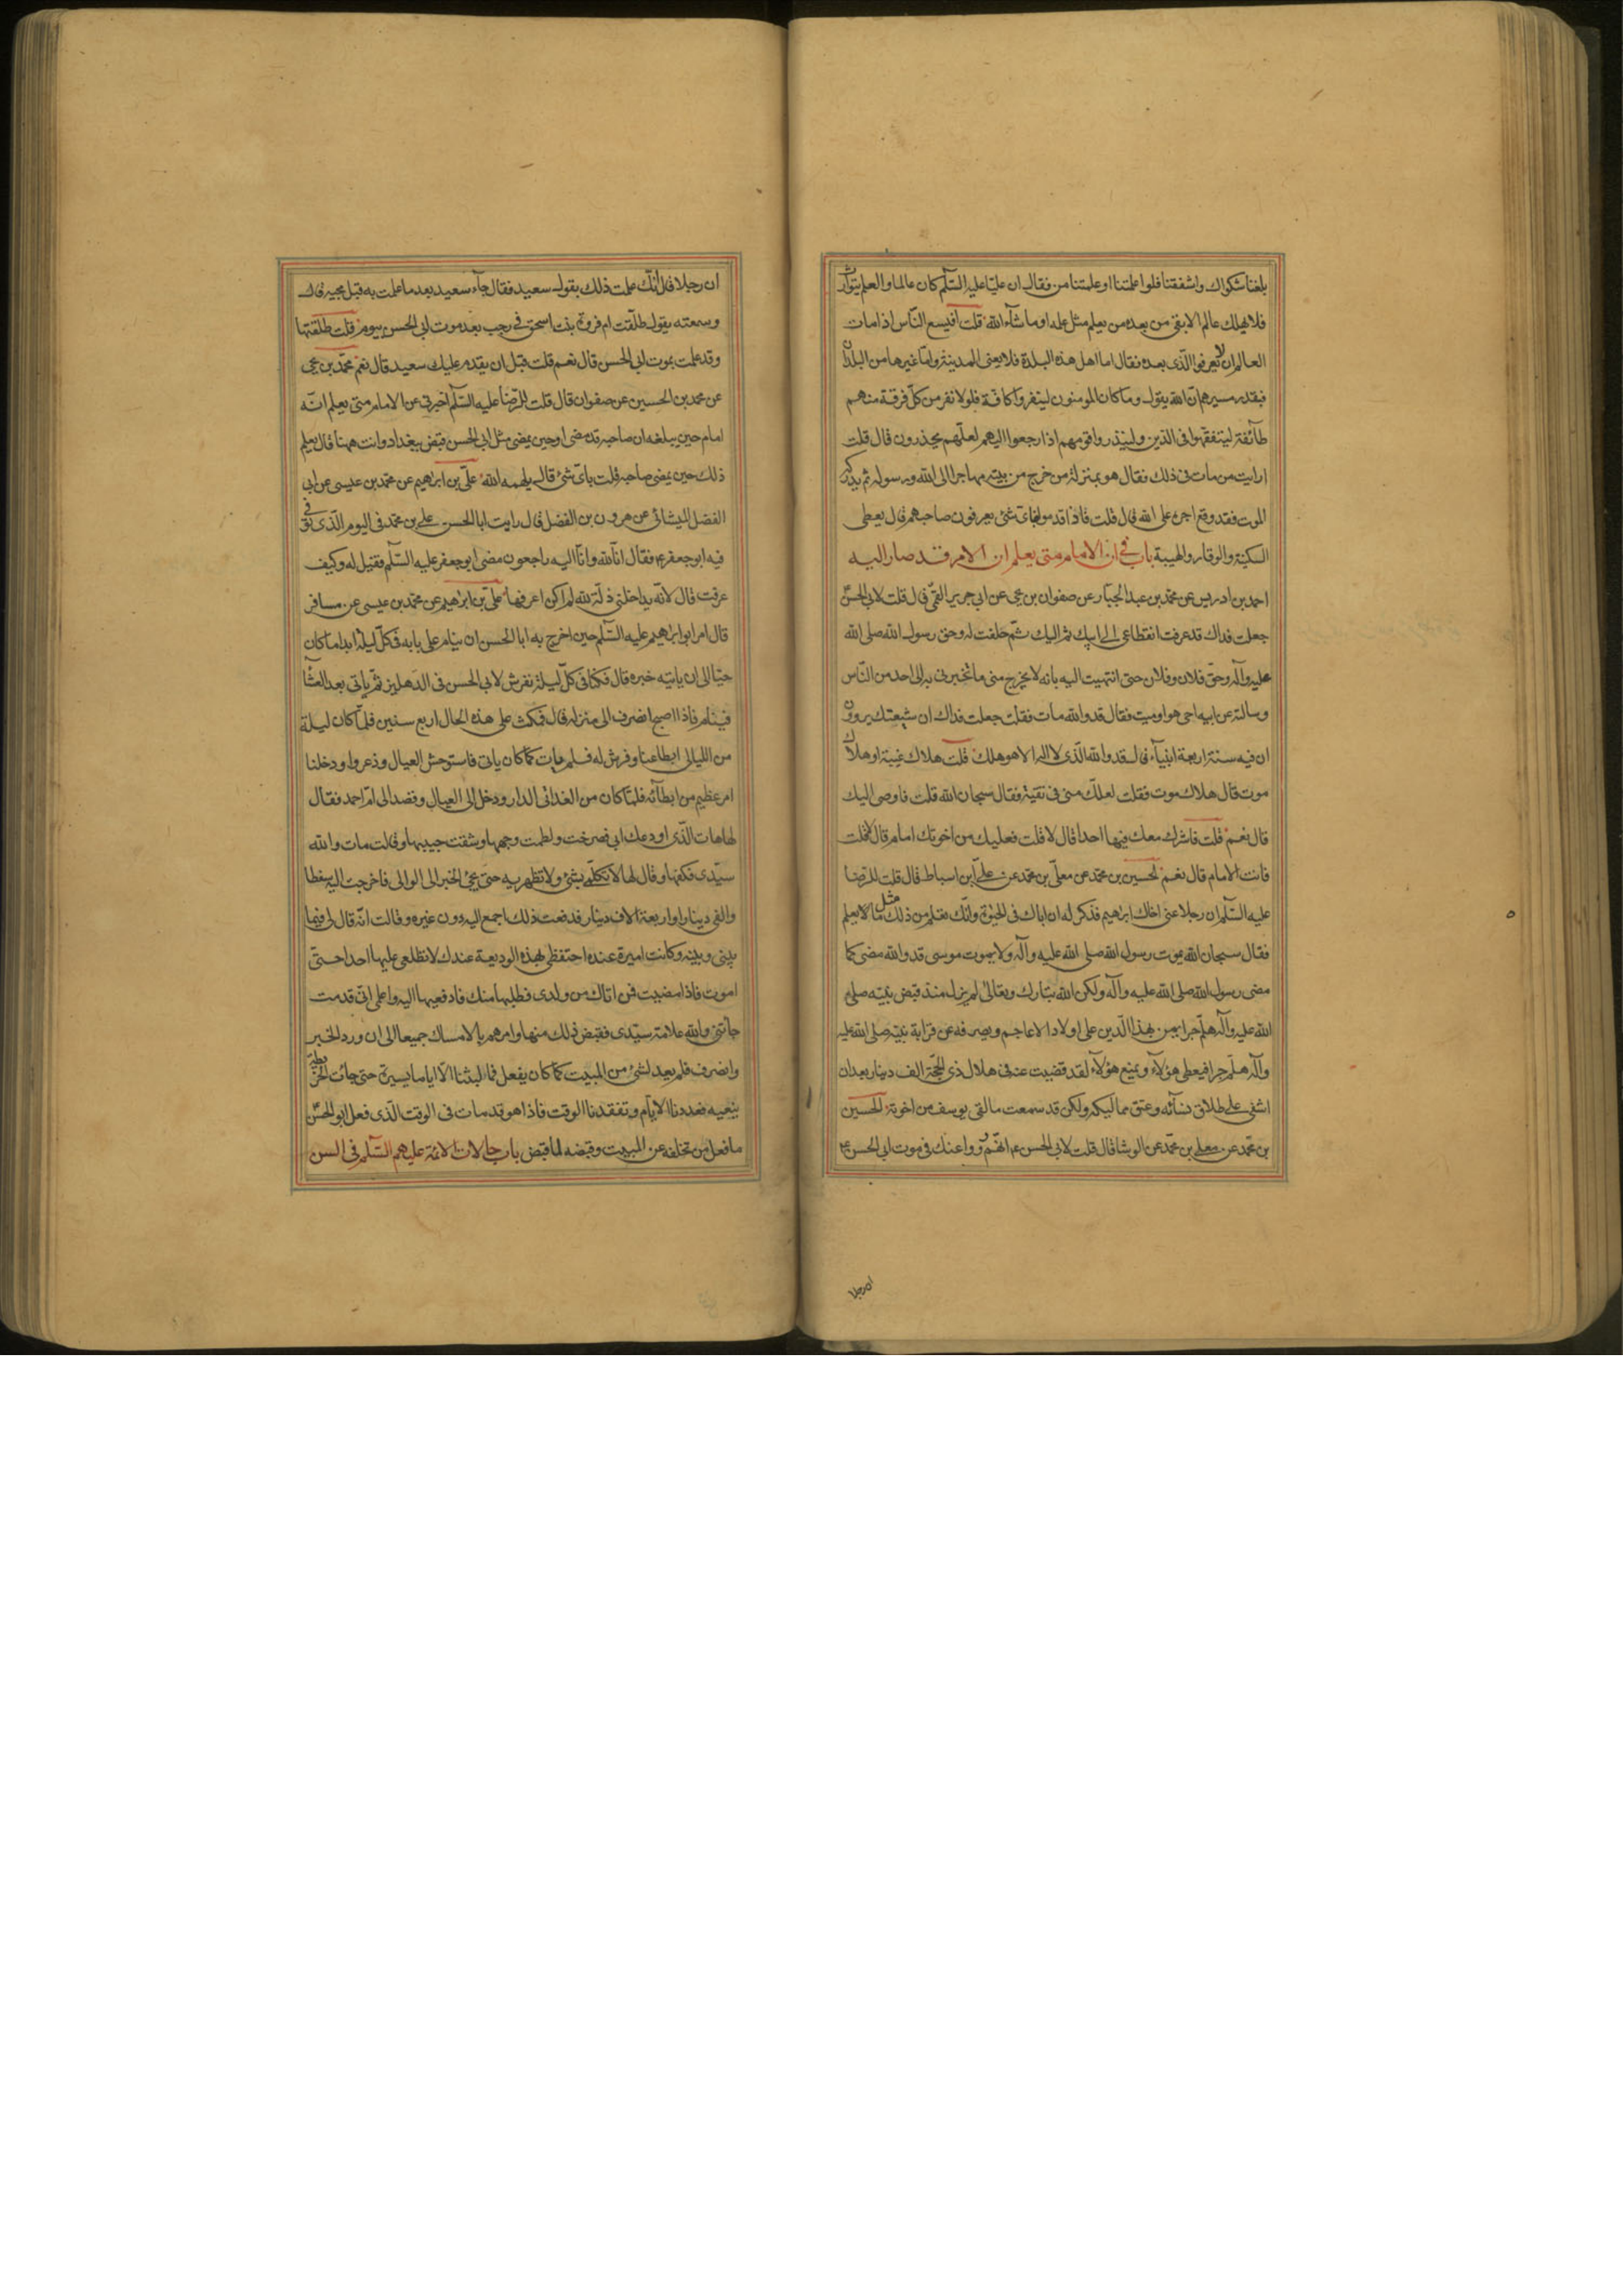 بلغنا شكواك واشفقنا فلو اعلمتنا او علمتنا من فقال ان عليا عليه السلام كان عالما والعلم يتوارث
فلا يهلك عالم الا بقى من بعده من يعلم مثل علمه او ما شاء الله قلت افيسع الناس اذا مات
العالم ان لا يعرفوا الذى بعده فقال اما اهل هذه البلدة فلا يعنى المدينة واما غيرها من البلدان
فبقدر مسيرهم ان الله يقول وما كان المومنون لينفروا كافة فلولا نفر من كل فرقة منهم
طائفة ليتفقهوا فى الدين ولينذروا قومهم اذا رجعوا اليهم لعلهم يحذرون قال قلت
ارايت من مات فى ذلك فقال هو بمنزلة من خرج من بيته مهاجرا الى الله ورسوله ثم يدركه
الموت فقد وقع اجره على الله قال قلت فاذا قدموا باى شئ يعرفون صاحبهم قال يعطى
السكينة والوقار والهيبة باب فى ان الامام متى يعلم ان الامر قد صار اليه
احمد بن ادريس عن محمد بن عبد الجبار عن صفوان بن يحيى عن ابى جرير القمى قال قلت لابى الحسن
جعلت فداك قد عرفت انقطاعى الى ابيك ثم اليك ثم حلفت له وحق رسول الله صلى الله
عليه وآله وحق فلان وفلان حتى انتهيت اليه بانه لا يخرج منى ما تخبرنى به الى احد من الناس
وسالته عن ابيه احى هو او ميت فقال قد والله مات فقلت جعلت فداك ان شيعتك يروون
ان فيه سنة اربعة انبياء قال قد والله الذى لا اله الا هو هلك قلت هلاك غيبة او هلاك
موت قال هلاك موت فقلت لعلك منى فى تقية فقال سبحان الله قلت فاوصى اليك
قال نعم قلت فاشرك معك فيها احدا قال لا قلت فعليك من اخوتك امام قال لا قلت
فانت الامام قال نعم الحسين بن محمد عن معلى بن محمد عن على ابن اسباط قال قلت للرضا
عليه السلام ان رجلا عنى اخاك ابراهيم فذكر له ان اباك فى الحيوة وانك تعلم من ذلك مثل ما لا يعلم
فقال سبحان الله يموت رسول الله صلى الله عليه وآله ولا يموت موسى قد والله مضى كما
مضى رسول الله صلى الله عليه وآله ولكن الله تبارك وتعالى لم يزل منذ قبض نبيه صلى
الله عليه وآله هلم جرا يمن بهذا الدين على اولاد الاعاجم ويصرفه عن قرابة نبيه صلى الله عليه
وآله هلم جرا فيعطى هؤلاء ويمنع هؤلاء لقد قضيت عنه فى هلال ذى الحجة الف دينار بعد ان
اشفى على طلاق نسائه وعتق مماليكه ولكن قد سمعت ما لقى يوسف من اخوته الحسين
بن محمد عن معلى بن محمد عن الوشا قال قلت لابى الحسن ع انهم رووا عنك فى موت ابى الحسن ع
ان رجلا
ان رجلا قال انك علمت ذلك بقول سعيد فقال جاء سعيد بعد ما علمت به قبل مجيئه قال
وسمعته يقول طلقت ام فروة بنت اسحق فى رجب بعد موت ابى الحسن بيوم قلت طلقتها
وقد علمت بموت ابى الحسن قال نعم قلت قبل ان يقدم عليك سعيد قال نعم محمد بن يحيى
عن محمد بن الحسين عن صفوان قال قلت للرضا عليه السلام اخبرنى عن الامام متى يعلم انه
امام حين يبلغه ان صاحبه قد مضى او حين يمضى مثل ابى الحسن قبض ببغداد وانت ههنا قال يعلم
ذلك حين يمضى صاحبه قلت باى شئ قال يلهمه الله على بن ابراهيم عن محمد بن عيسى عن ابى
الفضل الميشائى عن هرون بن الفضل قال رايت ابا الحسن على بن محمد فى اليوم الذى توفى
فيه ابو جعفر ع فقال انا لله وانا اليه راجعون مضى ابو جعفر عليه السلام فقيل له وكيف
عرفت قال لانه يداخلنى ذلة لله لم اكن اعرفها على بن ابراهيم عن محمد بن عيسى عن مسافر
قال امر ابو ابراهيم عليه السلام حين اخرج به ابا الحسن ان ينام على بابه فى كل ليلة ابدا ما كان
حيا الى ان ياتيه خبره قال فكنا فى كل ليلة نفرش لابى الحسن فى الدهليز ثم ياتى بعد العشاء
فينام فاذا اصبح انصرف الى منزله قال فمكث على هذه الحال اربع سنين فلما كان ليلة
من الليالى ابطا عنا وفرش له فلم يات كما كان ياتى فاستوحش العيال وذعروا ودخلنا
امر عظيم من ابطائه فلما كان من الغد اتى الدار ودخل الى العيال وقصد الى ام احمد فقال
لها هات الذى اودعك ابى فصرخت ولطمت وجهها وشقت جيبها وقالت مات والله
سيدى فكفها وقال لها لا تكلمى بشئ ولا تظهريه حتى يجئ الخبر الى الوالى فاخرجت اليه سفطا
والفى دينار او اربعة الاف دينار فدفعت ذلك اجمع اليه دون غيره وقالت انه قال لى فيما
بينى وبينه وكانت اميرة عنده احتفظى بهذه الوديعة عندك لا تطلعى عليها احدا حتى
اموت فاذا مضيت فمن اتاك من ولدى فطلبها منك فادفعيها اليه واعلمى انى قد مت
جائنى والله علامة سيدى فقبض ذلك منها وامرهم بالامساك جميعا الى ان ورد الخبر
وانصرف فلم يعد لشئ من المبيت كما كان يفعل فما لبثنا الا اياما يسيرة حتى جائت الخريطة
بنعيه فعددنا الايام وتفقدنا الوقت فاذا هو قد مات فى الوقت الذى فعل ابو الحسن
ما فعل من تخلفه عن المبيت وقبضه لما قبض باب حالات الائمة عليهم السلام فى السن